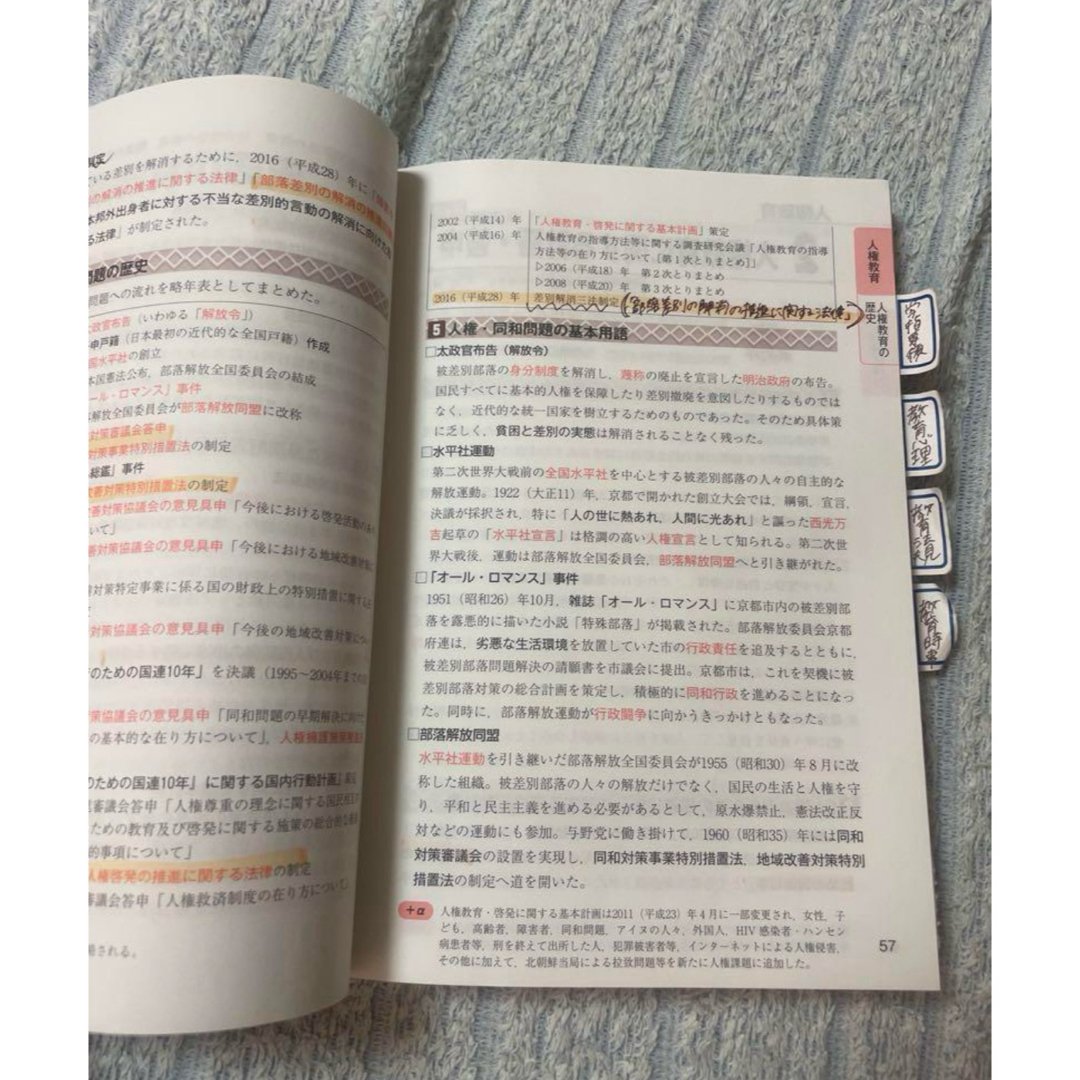 ている差別を解消するために，2016（平成28）年に「
の解消の推進に関する法律」「部落差別の解消の推進
本邦外出身者に対する不当な差別的言動の解消に向けた
る法律」が制定された。
問題の歴史
問題への流れを略年表としてまとめた。
太政官布告（いわゆる「解放令」）
戸籍（日本最初の近代的な全国戸籍）作成
国水平社の創立
本国憲法公布，部落解放全国委員会の結成
ール・ロマンス」事件
解放全国委員会が部落解放同盟に改称
対策審議会答申
対策事業特別措置法の制定
総鑑」事件
改善対策特別措置法の制定
改善対策協議会の意見具申「今後における啓発活動のあ
いて」
善対策協議会の意見具申「今後における地域改善対策
対策特定事業に係る国の財政上の特別措置に関する
対策協議会の意見具申「今後の地域改善対策につ
のための国連10年」を決議（1995～2004年まで
対策協議会の意見具申「同和問題の早期解決に向けた
の基本的な在り方について」，人権擁護施策推進
のための国連10年」に関する国内行動計画」
審議会答申「人権尊重の理念に関する国民相互の
ための教育及び啓発に関する施策の総合的な
的事項について」
人権啓発の推進に関する法律の制定
審議会答申「人権救済制度の在り方について」
される。
2002（平成14）年 「人権教育・啓発に関する基本計画」策定
2004（平成16）年 人権教育の指導方法等に関する調査研究会議「人権教育の指導
方法等の在り方について［第1次とりまとめ］」
▷2006（平成18）年 第2次とりまとめ
▷2008（平成20）年 第3次とりまとめ
2016（平成28）年 差別解消三法制定（「部落差別の解消の推進に関する法律」）
5 人権・同和問題の基本用語
□太政官布告（解放令）
被差別部落の身分制度を解消し，蔑称の廃止を宣言した明治政府の布告。
国民すべてに基本的人権を保障したり差別撤廃を意図したりするものでは
なく，近代的な統一国家を樹立するためのものであった。そのため具体策
に乏しく，貧困と差別の実態は解消されることなく残った。
□水平社運動
第二次世界大戦前の全国水平社を中心とする被差別部落の人々の自主的な
解放運動。1922（大正11）年，京都で開かれた創立大会では，綱領，宣言，
決議が採択され，特に「人の世に熱あれ，人間に光あれ」と謳った西光万
吉起草の「水平社宣言」は格調の高い人権宣言として知られる。第二次世
界大戦後，運動は部落解放全国委員会，部落解放同盟へと引き継がれた。
□「オール・ロマンス」事件
1951（昭和26）年10月，雑誌「オール・ロマンス」に京都市内の被差別部
落を露悪的に描いた小説「特殊部落」が掲載された。部落解放委員会京都
府連は，劣悪な生活環境を放置していた市の行政責任を追及するとともに，
被差別部落問題解決の請願書を市議会に提出。京都市は，これを契機に被
差別部落対策の総合計画を策定し，積極的に同和行政を進めることになっ
た。同時に，部落解放運動が行政闘争に向かうきっかけともなった。
□部落解放同盟
水平社運動を引き継いだ部落解放全国委員会が1955（昭和30）年8月に改
称した組織。被差別部落の人々の解放だけでなく，国民の生活と人権を守
り，平和と民主主義を進める必要があるとして，原水爆禁止，憲法改正反
対などの運動にも参加。与野党に働き掛けて，1960（昭和35）年には同和
対策審議会の設置を実現し，同和対策事業特別措置法，地域改善対策特別
措置法の制定へ道を開いた。
+α 人権教育・啓発に関する基本計画は2011（平成23）年4月に一部変更され，女性，子
ども，高齢者，障害者，同和問題，アイヌの人々，外国人，HIV感染者・ハンセン
病患者等，刑を終えて出所した人，犯罪被害者等，インターネットによる人権侵害，
その他に加えて，北朝鮮当局による拉致問題等を新たに人権課題に追加した。
57
人権教育
人権教育の
歴史
教育心理
教育法規
教育時事